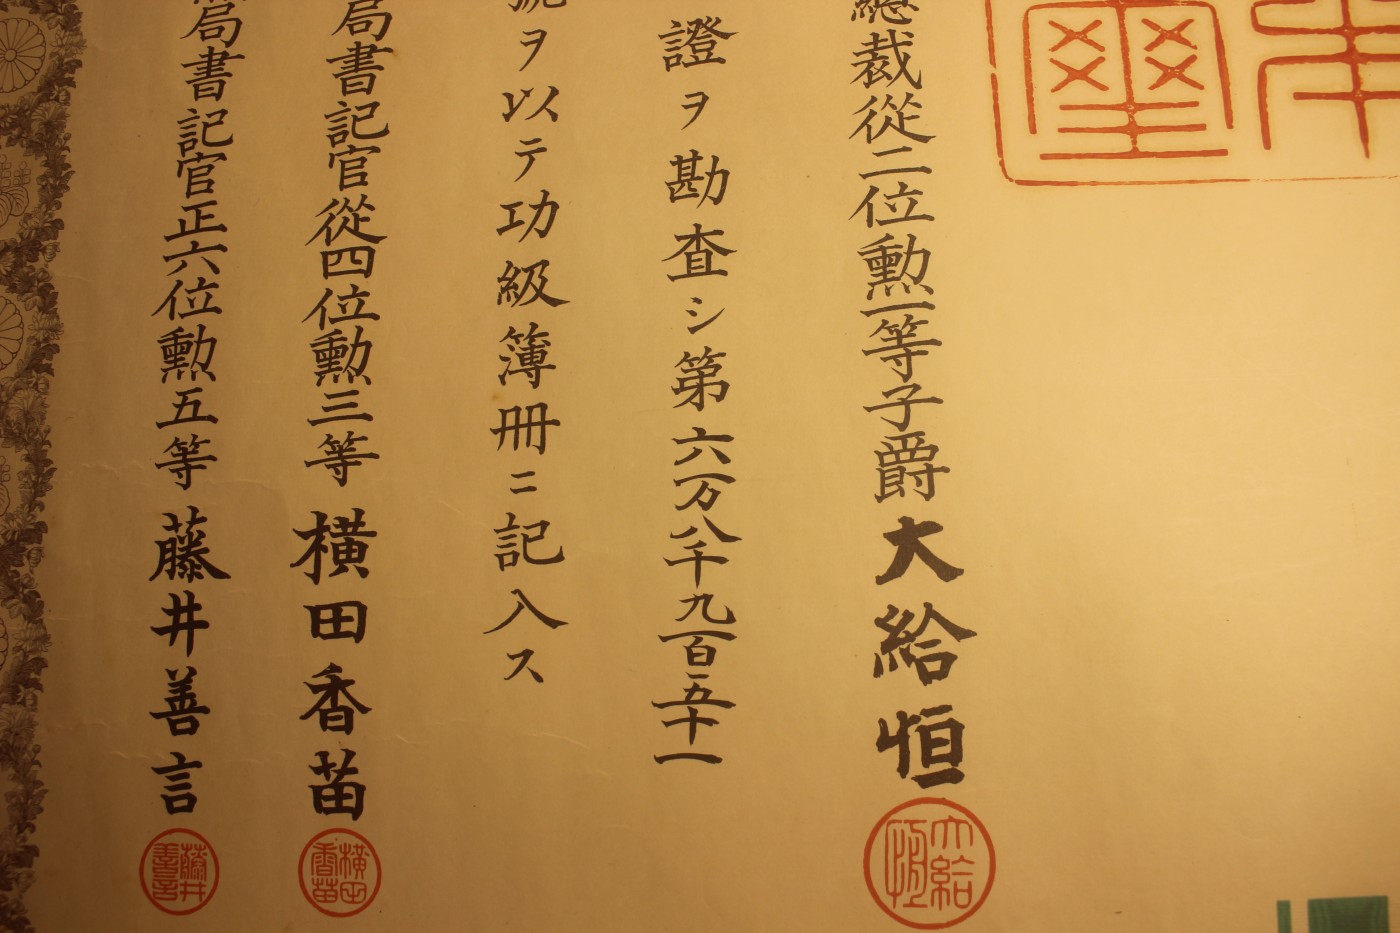 璽 本
總裁從二位勲一等子爵大給恒
大給恒
證ヲ勘査シ第六万八千九百五十一
號ヲ以テ功級簿冊ニ記入ス
局書記官從四位勲三等横田香苗
横田香苗
局書記官正六位勲五等藤井善言
藤井善言